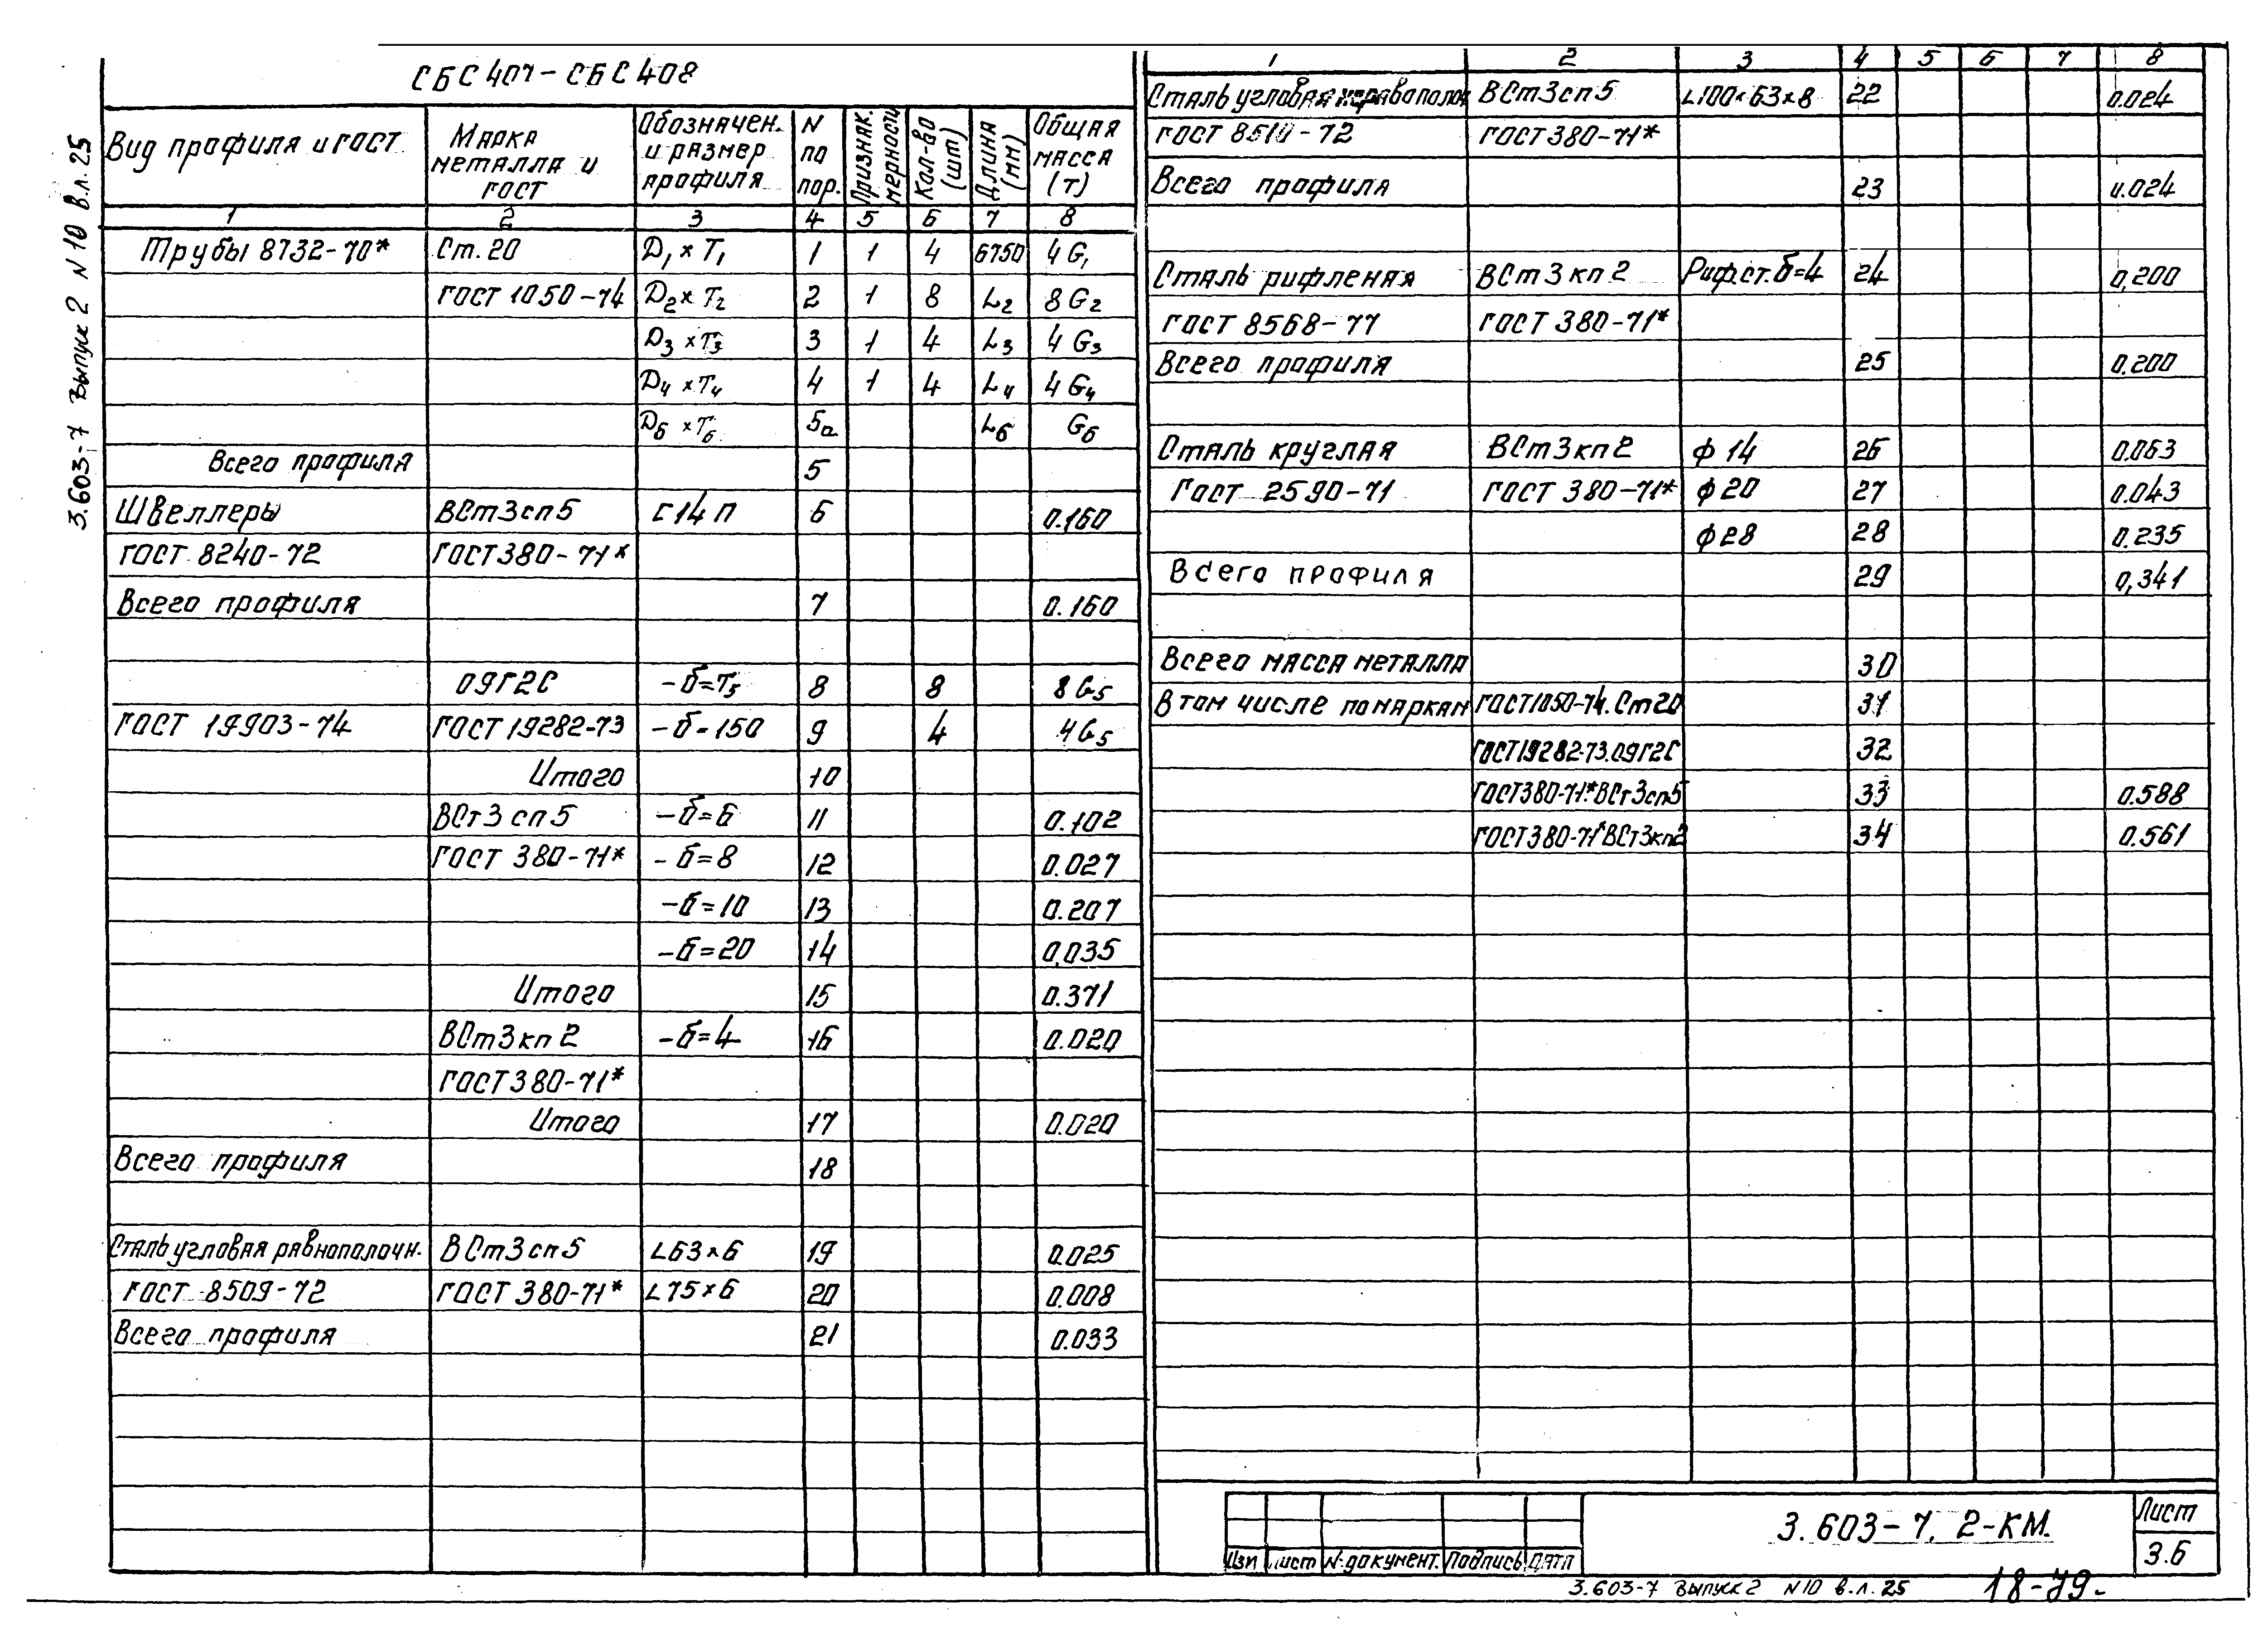 3.603-7 выпуск 2 N10 в.л. 25
СБС 407 - СБС 408
Вид профиля и ГОСТ | Марка металла и ГОСТ | Обозначен. и размер профиля | N по пор. | Признак. мерности | Кол-во (шт) | Длина (мм) | Общая масса (т)
1 2 3 4 5 6 7 8
Трубы 8732-70* Ст.20 D1 × T1 1 1 4 6750 4 G1
ГОСТ 1050-74 D2 × T2 2 1 8 L2 8 G2
D3 × T3 3 1 4 L3 4 G3
D4 × T4 4 1 4 L4 4 G4
D6 × T6 5а L6 G6
Всего профиля 5
Швеллеры ВСт3сп5 С14 П 6 0.160
ГОСТ 8240-72 ГОСТ 380-71*
Всего профиля 7 0.160
09Г2С -б=T5 8 8 8 G5
ГОСТ 19903-74 ГОСТ 19282-73 -б=150 9 4 4 G5
Итого 10
ВСт3сп5 -б=6 11 0.102
ГОСТ 380-71* -б=8 12 0.027
-б=10 13 0.207
-б=20 14 0,035
Итого 15 0.371
ВСт3кп2 -б=4 16 0.020
ГОСТ 380-71*
Итого 17 0.020
Всего профиля 18
Сталь угловая равнополочн. ВСт3сп5 L63×6 19 0.025
ГОСТ 8509-72 ГОСТ 380-71* L75×6 20 0.008
Всего профиля 21 0.033
1 2 3 4 5 6 7 8
Сталь угловая неравнополоч ВСт3сп5 L100×63×8 22 0.024
ГОСТ 8510-72 ГОСТ 380-71*
Всего профиля 23 0.024
Сталь рифленая ВСт3кп2 Риф.ст.б=4 24 0,200
ГОСТ 8568-77 ГОСТ 380-71*
Всего профиля 25 0.200
Сталь круглая ВСт3кп2 ф 14 26 0.063
ГОСТ 2590-71 ГОСТ 380-71* ф20 27 0.043
ф28 28 0.235
Всего профиля 29 0,341
Всего масса металла 30
В том числе по маркам ГОСТ1050-74. Ст20 31
ГОСТ19282-73.09Г2С 32
ГОСТ380-71*ВСт3сп5 33 0.588
ГОСТ380-71*ВСт3кп2 34 0.561
3.603-7. 2-КМ.
Лист
3.6
Изм Лист N документ. Подпись Дата
3.603-7 выпуск 2 N10 в.л. 25
18-79-